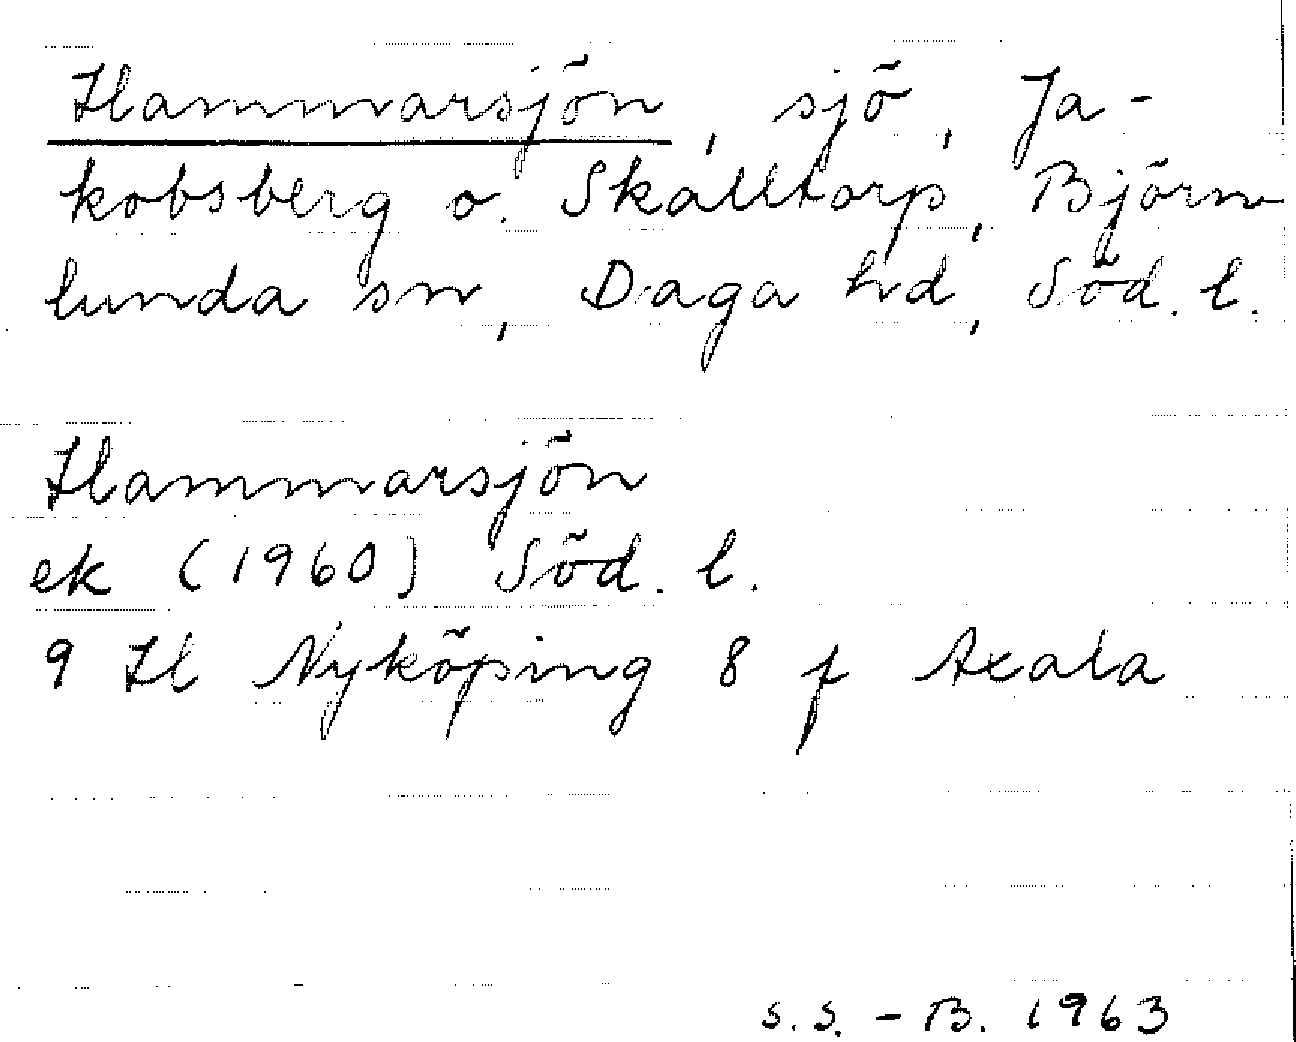 Hammarsjön, sjö, Ja-
kobsberg o. Skälltorp, Björn
lunda sn, Daga hd, Söd. l.
Hammarsjön
ek (1960) Söd. l.
9 H Nyköping 8 f Axala
S.S. - B. 1963